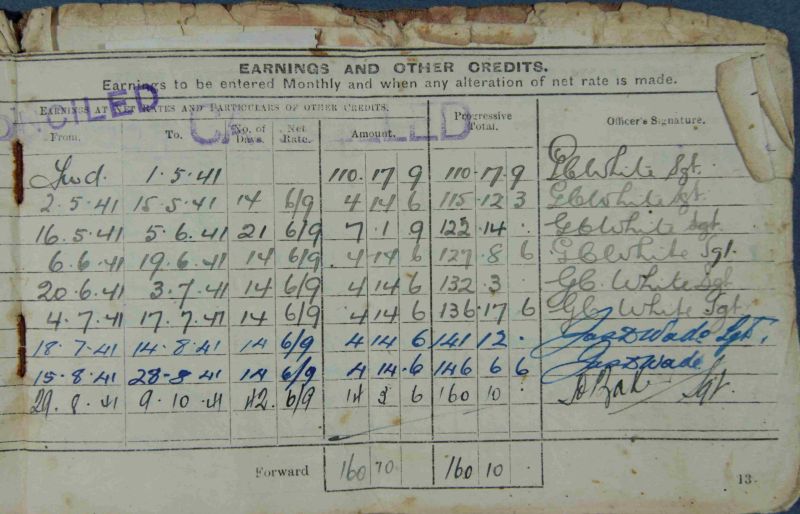 EARNINGS AND OTHER CREDITS.
Earnings to be entered Monthly and when any alteration of net rate is made.
CANCELLED
EARNINGS AT NET RATES AND PARTICULARS OF OTHER CREDITS.
From. To. No. of Days. Net Rate. Amount. Progressive Total. Officer's Signature.
Fwd. 1.5.41 110.17.9 110.17.9 GC White Sgt.
2.5.41 15.5.41 14 6/9 4 14 6 115.12 3 GC White Sgt
16.5.41 5.6.41 21 6/9 7.1 9 122.14. GC White Sgt
6.6.41 19.6.41 14 6/9 4 14 6 127.8 6 GC White Sgt.
20.6.41 3.7.41 14 6/9 4 14 6 132 3. GC. White Sgt
4.7.41 17.7.41 14 6/9 4 14 6 136.17 6 GC White Sgt
18.7.41 14.8.41 14 6/9 4 14 6 141 12. Wade Sgt.
15.8.41 28.8.41 14 6/9 4 14.6 146 6 6 Wade
29.8.41 9.10.41 42. 6/9 14 3 6 160 10. Sgt.
Forward 160 10 160 10.
13.